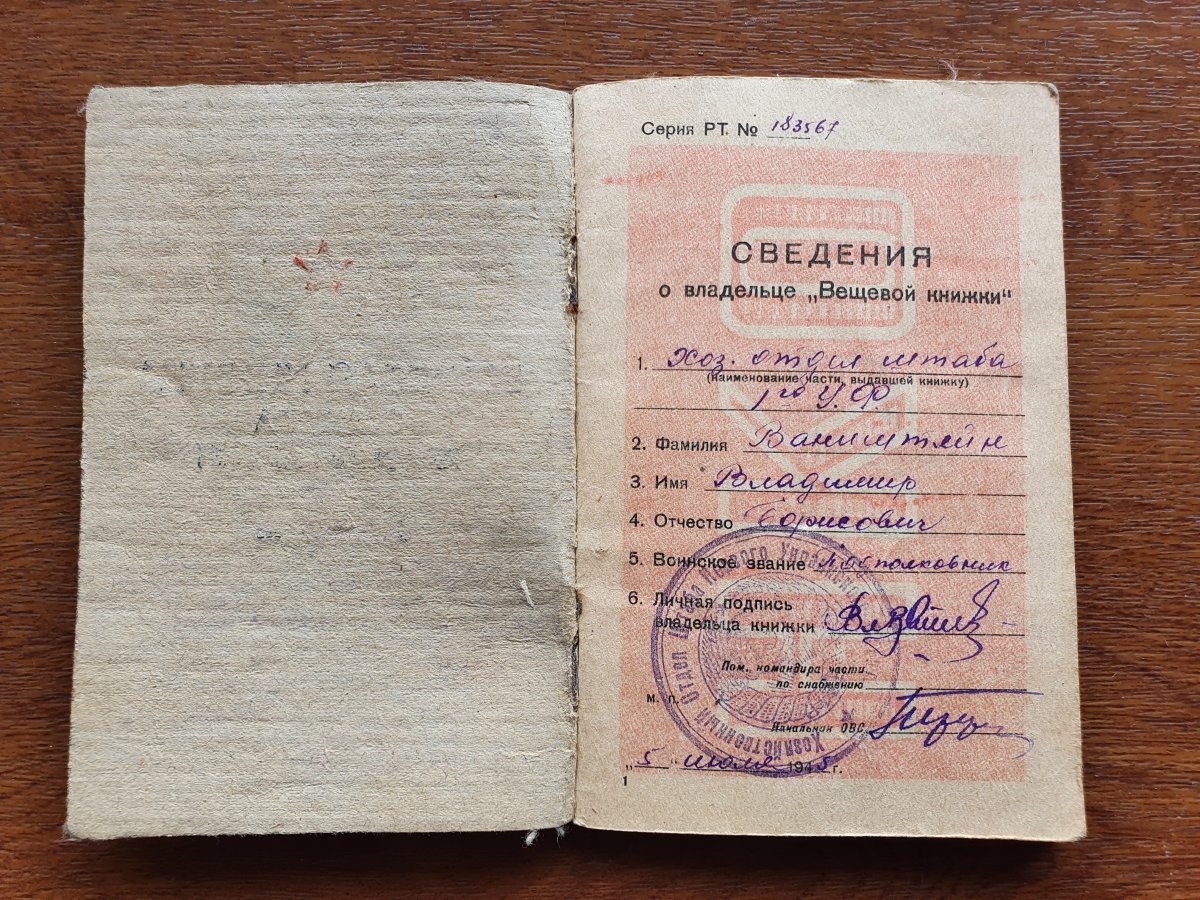 Серия РТ. № 183567
СВЕДЕНИЯ
о владельце „Вещевой книжки“
1. Хоз. отдел штаба
(наименование части, выдавшей книжку)
1го У.Ф.
2. Фамилия Ванштейн
3. Имя Владимир
4. Отчество Борисович
5. Воинское звание Подполковник
6. Личная подпись
владельца книжки
Пом. командира части
по снабжению
М. П.
Начальник ОВС
„5“ июля 1945 г.
1
Хозяйственный Отдел Штаба Первого